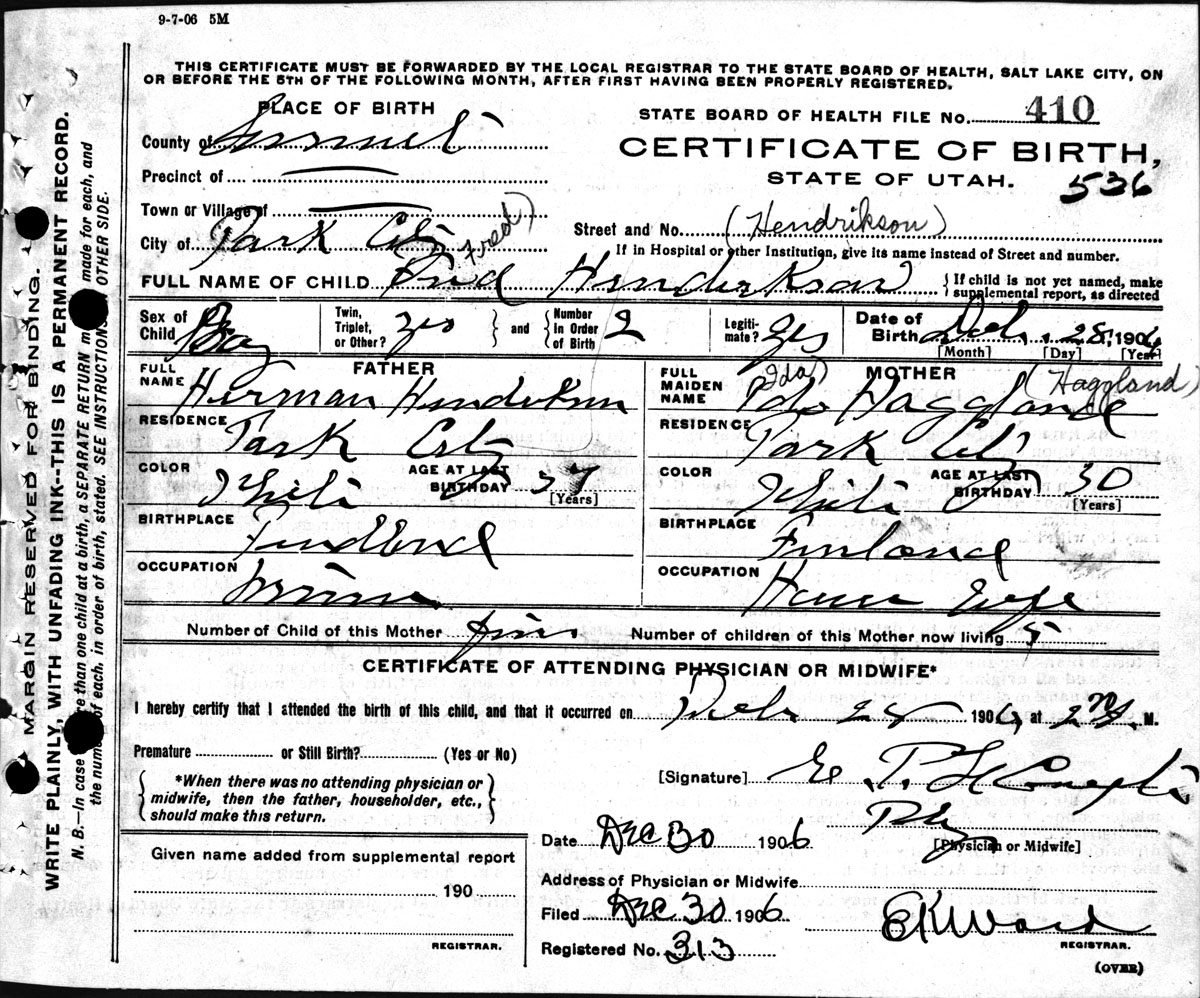 9-7-06 5M
THIS CERTIFICATE MUST BE FORWARDED BY THE LOCAL REGISTRAR TO THE STATE BOARD OF HEALTH, SALT LAKE CITY, ON
OR BEFORE THE 5TH OF THE FOLLOWING MONTH, AFTER FIRST HAVING BEEN PROPERLY REGISTERED.
PLACE OF BIRTH
STATE BOARD OF HEALTH FILE No. 410
County of Summit
CERTIFICATE OF BIRTH,
Precinct of
STATE OF UTAH.
536
Town or Village of
Street and No. (Hendrikson)
City of Park City
(Fred)
If in Hospital or other Institution, give its name instead of Street and number.
FULL NAME OF CHILD Fred Henderkson
{If child is not yet named, make supplemental report, as directed
Sex of Child Boy
Twin, Triplet, or Other? Yes
and
Number in Order of Birth 2
Legitimate? Yes
Date of Birth Dec. 28, 1906
[Month] [Day] [Year]
FATHER
FULL NAME Herman Henderkson
RESIDENCE Park City
COLOR White
AGE AT LAST BIRTHDAY
[Years]
BIRTHPLACE Findland
OCCUPATION
MOTHER
(Ida) (Haggland)
FULL MAIDEN NAME Ida Hagglande
RESIDENCE Park City
COLOR White
AGE AT LAST BIRTHDAY 30
[Years]
BIRTHPLACE Finland
OCCUPATION House Wife
Number of Child of this Mother five Number of children of this Mother now living 5
CERTIFICATE OF ATTENDING PHYSICIAN OR MIDWIFE*
I hereby certify that I attended the birth of this child, and that it occurred on Dec 28 1906, at 2 M.
Premature or Still Birth? (Yes or No)
{*When there was no attending physician or
midwife, then the father, householder, etc.,
should make this return.}
[Signature] E. P.
Phy
[Physician or Midwife]
Date Dec 30 1906
Given name added from supplemental report
190
REGISTRAR.
Address of Physician or Midwife
Filed Dec 30 1906
EKWard
REGISTRAR.
Registered No. 313
(OVER)
MARGIN RESERVED FOR BINDING.
WRITE PLAINLY, WITH UNFADING INK--THIS IS A PERMANENT RECORD.
N. B.—In case more than one child at a birth, a SEPARATE RETURN made for each, and
the number of each, in order of birth, stated. SEE INSTRUCTIONS OTHER SIDE.